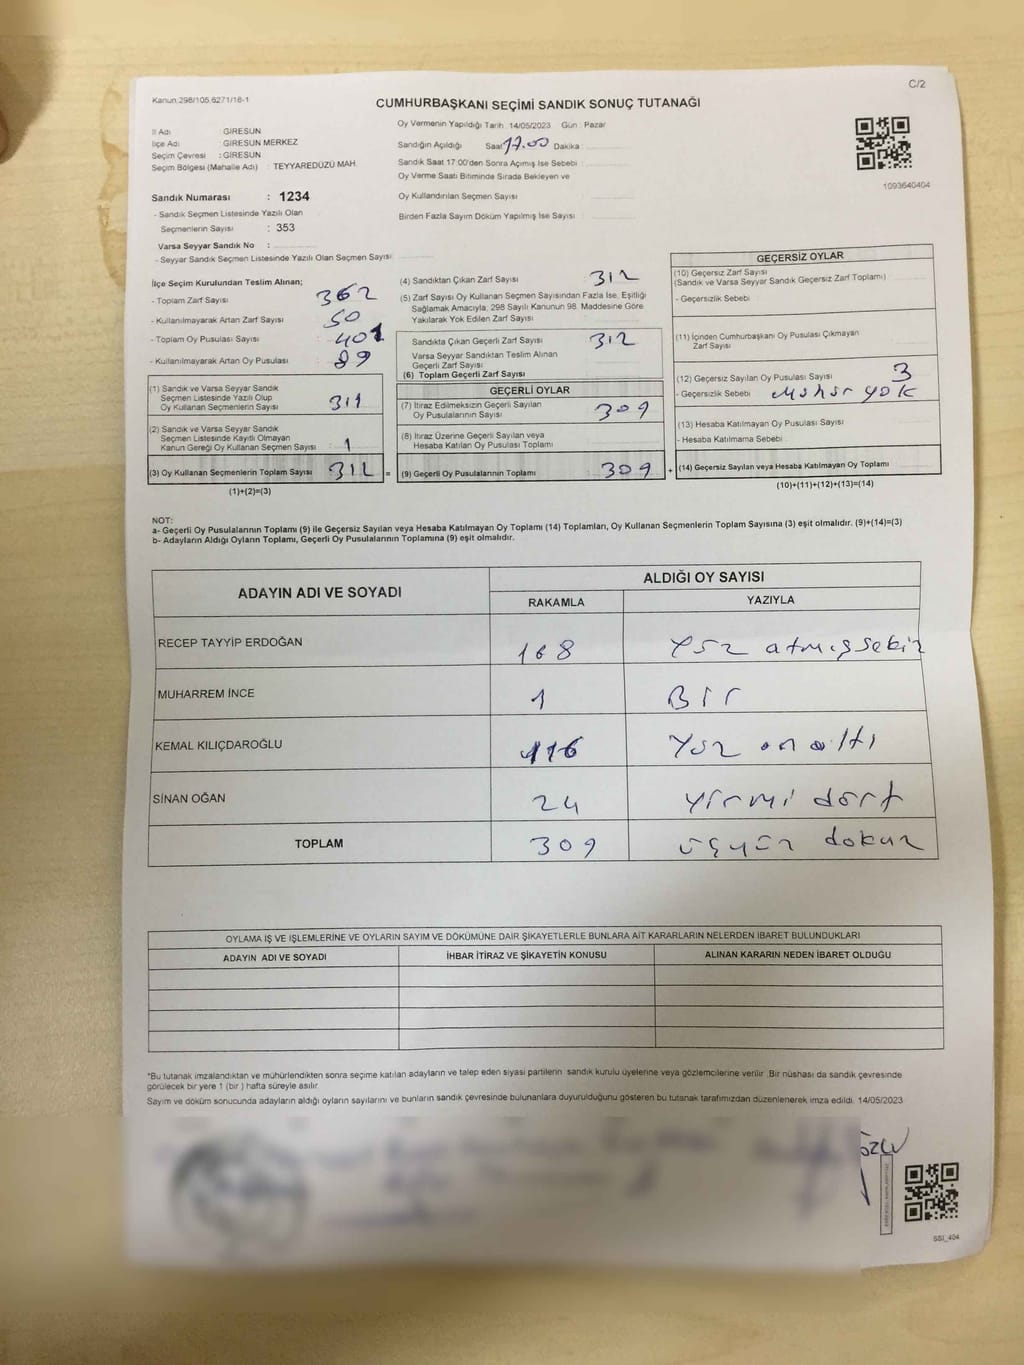 C/2
Kanun:298/105,6271/16-1
CUMHURBAŞKANI SEÇİMİ SANDIK SONUÇ TUTANAĞI
İl Adı : GİRESUN
İlçe Adı : GİRESUN MERKEZ
Seçim Çevresi : GİRESUN
Seçim Bölgesi (Mahalle Adı) : TEYYAREDÜZÜ MAH.
Sandık Numarası : 1234
- Sandık Seçmen Listesinde Yazılı Olan
Seçmenlerin Sayısı : 353
Varsa Seyyar Sandık No :
- Seyyar Sandık Seçmen Listesinde Yazılı Olan Seçmen Sayısı
Oy Vermenin Yapıldığı Tarih : 14/05/2023 Gün : Pazar
Sandığın Açıldığı Saat 17.00 Dakika
Sandık Saat 17:00'den Sonra Açımış İse Sebebi
Oy Verme Saati Bitiminde Sırada Bekleyen ve
Oy Kullandırılan Seçmen Sayısı
Birden Fazla Sayım Döküm Yapılmış İse Sayısı
1093640404
İlçe Seçim Kurulundan Teslim Alınan;
- Toplam Zarf Sayısı 362
- Kullanılmayarak Artan Zarf Sayısı 50
- Toplam Oy Pusulası Sayısı : 401
- Kullanılmayarak Artan Oy Pusulası : 89
(1) Sandık ve Varsa Seyyar Sandık
Seçmen Listesinde Yazılı Olup
Oy Kullanan Seçmenlerin Sayısı 311
(2) Sandık ve Varsa Seyyar Sandık
Seçmen Listesinde Kayıtlı Olmayan
Kanun Gereği Oy Kullanan Seçmen Sayısı 1
(3) Oy Kullanan Seçmenlerin Toplam Sayısı 312 =
(1)+(2)=(3)
(4) Sandıktan Çıkan Zarf Sayısı 312
(5) Zarf Sayısı Oy Kullanan Seçmen Sayısından Fazla İse, Eşitliği
Sağlamak Amacıyla; 298 Sayılı Kanunun 98. Maddesine Göre
Yakılarak Yok Edilen Zarf Sayısı
Sandıkta Çıkan Geçerli Zarf Sayısı 312
Varsa Seyyar Sandıktan Teslim Alınan
Geçerli Zarf Sayısı
(6) Toplam Geçerli Zarf Sayısı
GEÇERLİ OYLAR
(7) İtiraz Edilmeksizin Geçerli Sayılan
Oy Pusulalarının Sayısı 309
(8) İtiraz Üzerine Geçerli Sayılan veya
Hesaba Katılan Oy Pusulası Toplamı
(9) Geçerli Oy Pusulalarının Toplamı 309 +
GEÇERSİZ OYLAR
(10) Geçersiz Zarf Sayısı
(Sandık ve Varsa Seyyar Sandık Geçersiz Zarf Toplamı)
- Geçersizlik Sebebi
(11) İçinden Cumhurbaşkanı Oy Pusulası Çıkmayan
Zarf Sayısı
(12) Geçersiz Sayılan Oy Pusulası Sayısı 3
- Geçersizlik Sebebi Mühür yok
(13) Hesaba Katılmayan Oy Pusulası Sayısı
- Hesaba Katılmama Sebebi
(14) Geçersiz Sayılan veya Hesaba Katılmayan Oy Toplamı
(10)+(11)+(12)+(13)=(14)
NOT:
a- Geçerli Oy Pusulalarının Toplamı (9) ile Geçersiz Sayılan veya Hesaba Katılmayan Oy Toplamı (14) Toplamları, Oy Kullanan Seçmenlerin Toplam Sayısına (3) eşit olmalıdır. (9)+(14)=(3)
b- Adayların Aldığı Oyların Toplamı, Geçerli Oy Pusulalarının Toplamına (9) eşit olmalıdır.
ADAYIN ADI VE SOYADI
ALDIĞI OY SAYISI
RAKAMLA YAZIYLA
RECEP TAYYİP ERDOĞAN 168 Yüz atmışsekiz
MUHARREM İNCE 1 Bir
KEMAL KILIÇDAROĞLU 116 Yüz on altı
SİNAN OĞAN 24 Yirmi dört
TOPLAM 309 üçyüz dokuz
OYLAMA İŞ VE İŞLEMLERİNE VE OYLARIN SAYIM VE DÖKÜMÜNE DAİR ŞİKAYETLERLE BUNLARA AİT KARARLARIN NELERDEN İBARET BULUNDUKLARI
ADAYIN ADI VE SOYADI İHBAR İTİRAZ VE ŞİKAYETİN KONUSU ALINAN KARARIN NEDEN İBARET OLDUĞU
*Bu tutanak imzalandıktan ve mühürlendikten sonra seçime katılan adayların ve talep eden siyasi partilerin sandık kurulu üyelerine veya gözlemcilerine verilir. Bir nüshası da sandık çevresinde
görülecek bir yere 1 (bir ) hafta süreyle asılır.
Sayım ve döküm sonucunda adayların aldığı oyların sayılarını ve bunların sandık çevresinde bulunanlara duyurulduğunu gösteren bu tutanak tarafımızdan düzenlenerek imza edildi. 14/05/2023
SSI_404